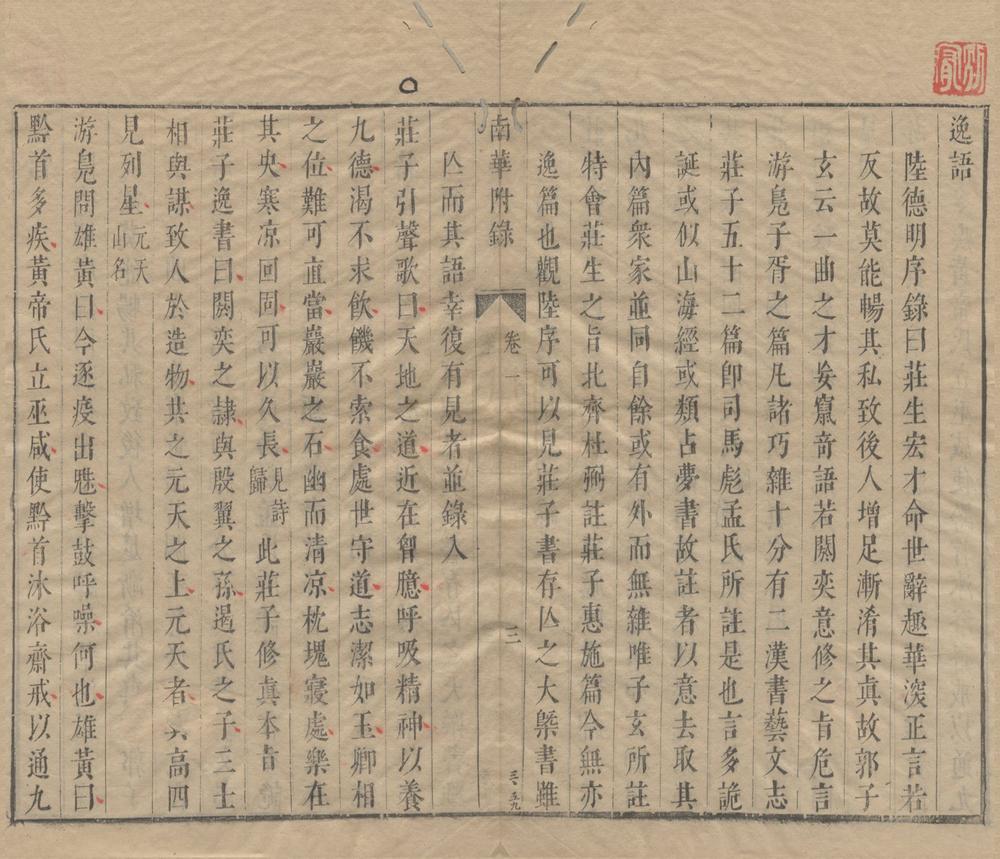 逸語
陸德明序錄曰莊生宏才命世辭趣華深正言若
反故莫能暢其私致後人增足漸淆其眞故郭子
玄云一曲之才妄竄奇語若閼奕意修之旨危言
游鳧子胥之篇凡諸巧雜十分有二漢書藝文志
莊子五十二篇卽司馬彪孟氏所註是也言多詭
誕或似山海經或類占夢書故註者以意去取其
內篇衆家並同自餘或有外而無雜唯子玄所註
特會莊生之旨北齊杜弼註莊子惠施篇今無亦
逸篇也觀陸序可以見莊子書存亾之大槩書雖
亾而其語幸復有見者並錄入
南華附錄 卷一 三
莊子引聲歌曰天地之道近在胷臆呼吸精神以養
九德渴不求飮饑不索食處世守道志潔如玉卿相
之位難可直當巖巖之石幽而清凉枕塊寢處樂在
其央寒凉回固可以久長見詩歸此莊子修眞本旨
莊子逸書曰閼奕之隷與殷翼之孫遏氏之子三士
相與謀致人於造物共之元天之上元天者其高四
見列星元天山名
游鳧問雄黃曰今逐疫出魅擊鼓呼噪何也雄黃曰
黔首多疾黃帝氏立巫咸使黔首沐浴齋戒以通九